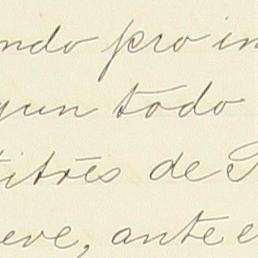 ndo pro in
gun todo
titrés de
eve, ante e